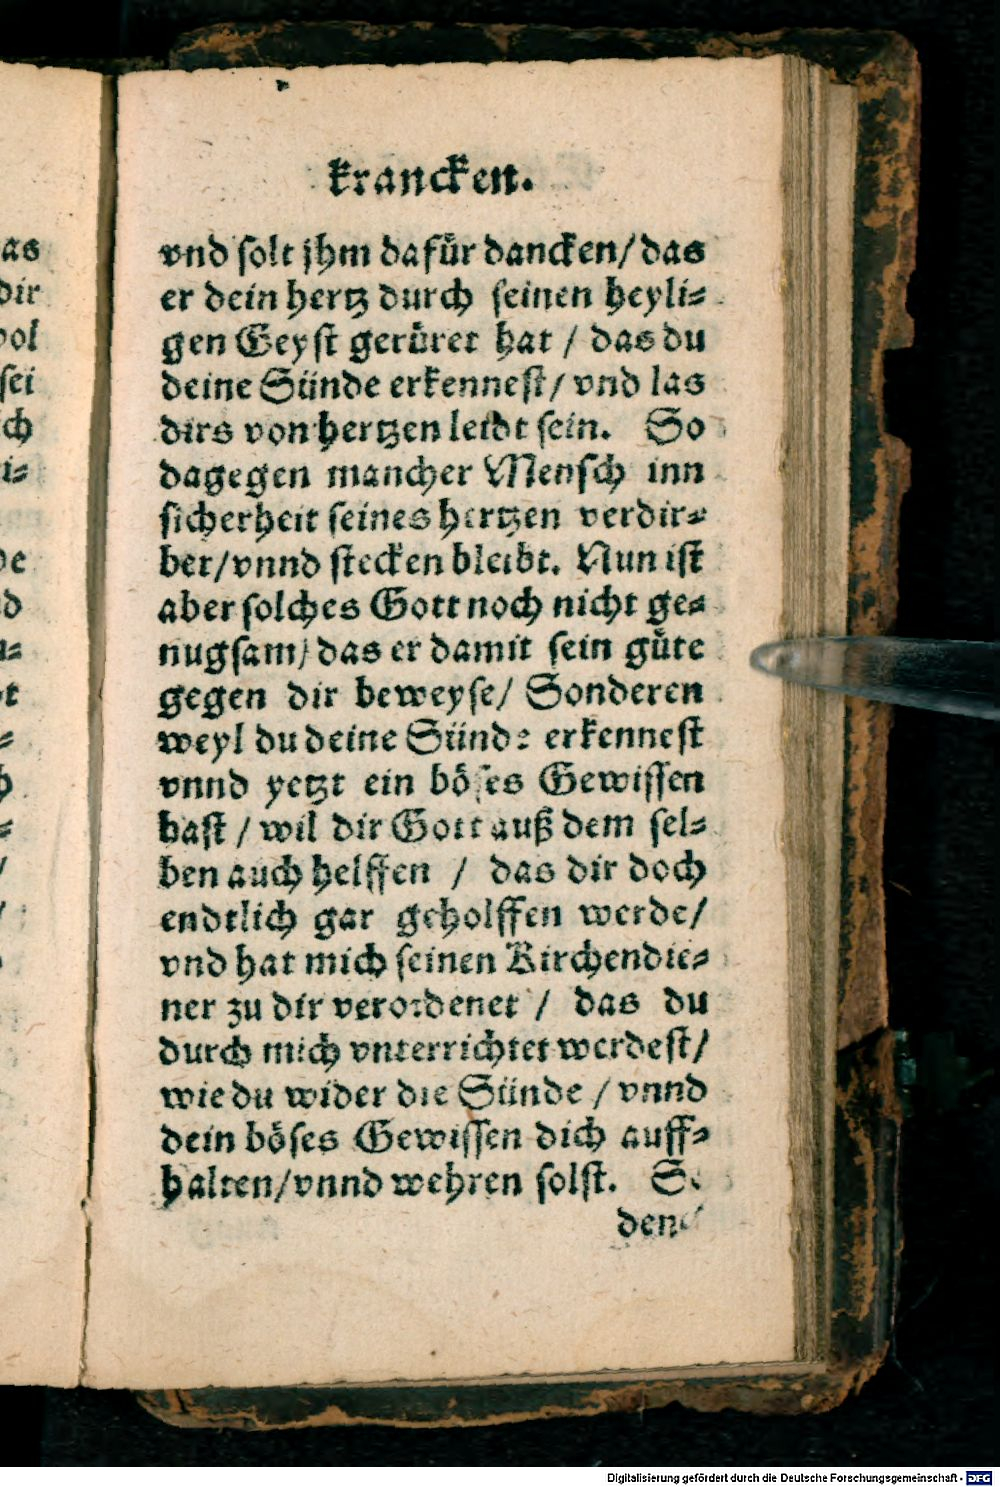 as
dir
vol
sei
ich
i⸗
de
d
u⸗
t
⸗
⸗
/
krancken.
vnd solt jhm dafür dancken/ das
er dein hertz durch seinen heyli⸗
gen Geyst gerüret hat / das du
deine Sünde erkennest/ vnd las
dirs von hertzen leidt sein. So
dagegen mancher Mensch inn
sicherheit seines hertzen verdir⸗
bet/ vnnd stecken bleibt. Nun ist
aber solches Gott noch nicht ge⸗
nugsam/ das er damit sein güte
gegen dir beweyse/ Sonderen
weyl du deine Sünde erkennest
vnnd yetzt ein böses Gewissen
hast / wil dir Gott auß dem sel⸗
ben auch helffen / das dir doch
endtlich gar geholffen werde/
vnd hat mich seinen Kirchendie⸗
ner zu dir verordenet / das du
durch mich vnterrichtet werdest/
wie du wider die Sünde / vnnd
dein böses Gewissen dich auff⸗
halten/ vnnd wehren solst. So
denck
Digitalisierung gefördert durch die Deutsche Forschungsgemeinschaft - DFG